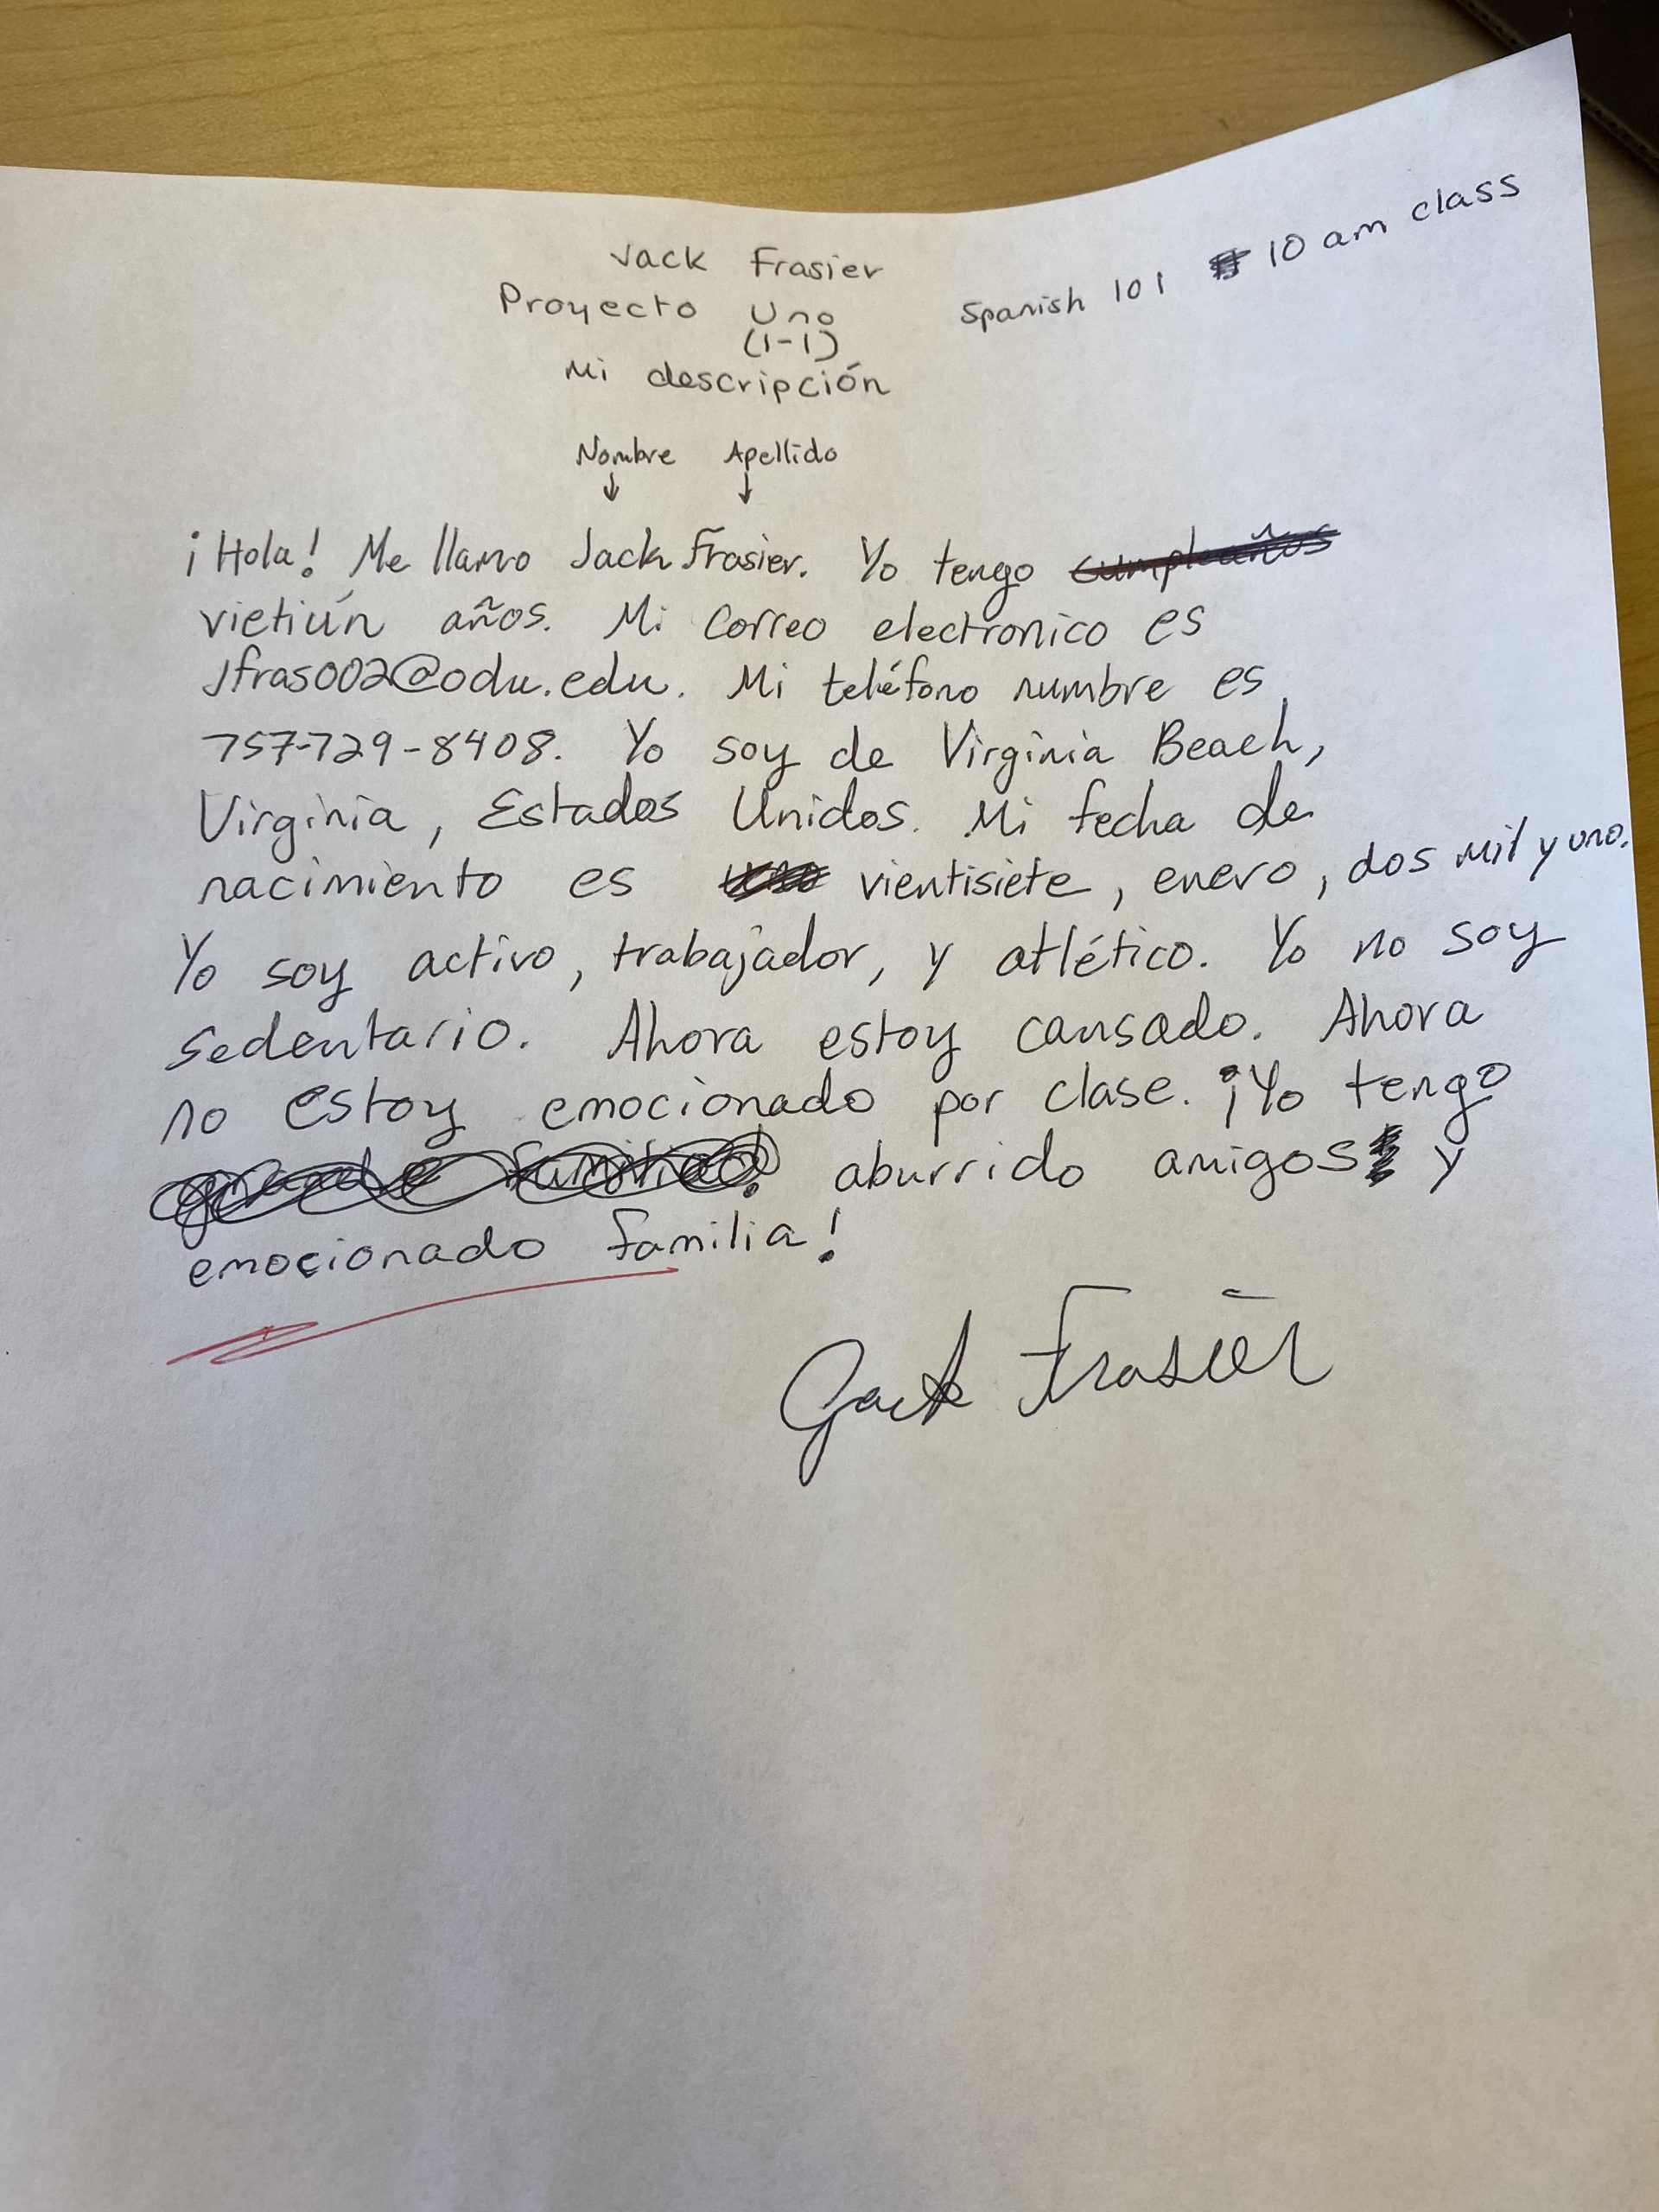 Jack Frasier
Spanish 101 10 am class
Proyecto Uno
(1-1)
Mi descripción
Nombre Apellido
↓ ↓
¡Hola! Me llamo Jack Frasier. Yo tengo cumpleaños
vietiún años. Mi correo electronico es
Jfras002@odu.edu. Mi teléfono numbre es
757-729-8408. Yo soy de Virginia Beach,
Virginia, Estados Unidos. Mi fecha de
nacimiento es vientisiete, enero, dos mil y uno.
Yo soy activo, trabajador, y atlético. Yo no soy
sedentario. Ahora estoy cansado. Ahora
no estoy emocionado por clase. ¡Yo tengo
aburrido amigos y
emocionado familia!
Jack Frasier